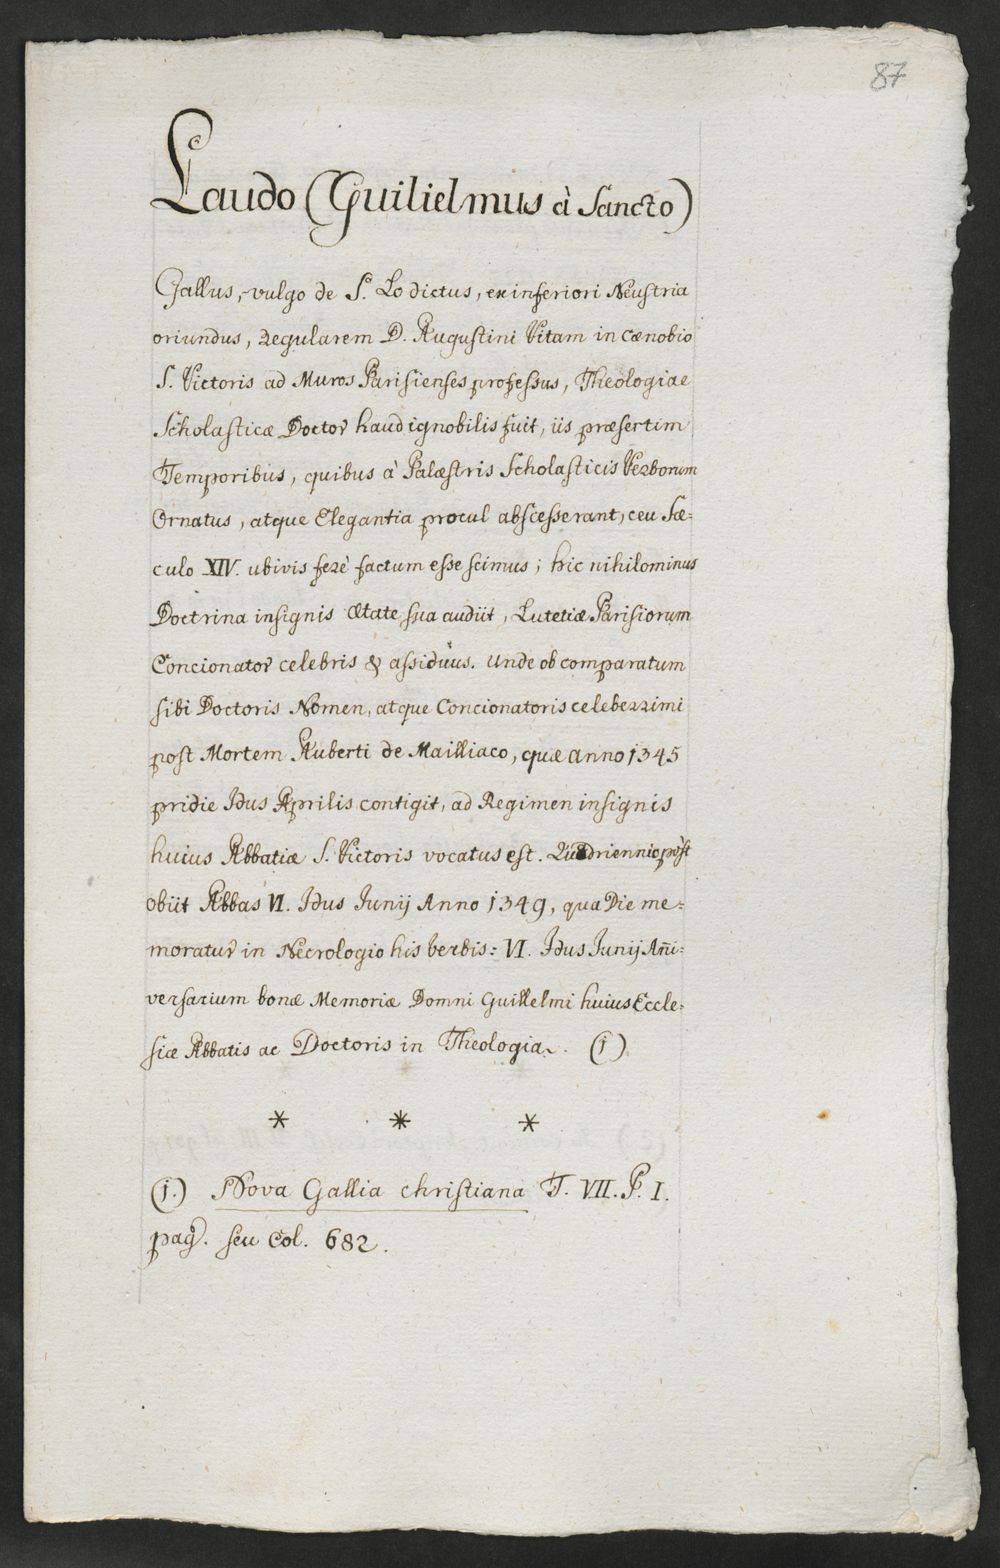 87
Laudo (Guilielmus à Sancto)
Gallus, vulgo de S. Lo dictus, ex inferiori Neustria
oriundus, regularem D. Augustini Vitam in cœnobio
S. Victoris ad Muros Parisienses professus, Theologiae
Scholasticæ Doctor haud ignobilis fuit, iis præsertim
Temporibus, quibus à Palæstris Scholasticis Verborum
Ornatus, atque Elegantia procul abscesserant, ceu Sæ=
culo XIV. ubivis ferè factum esse scimus; hic nihilominus
Doctrina insignis Ætate sua audiit, Lutetiæ Parisiorum
Concionator celebris & assiduus. Unde ob comparatum
sibi Doctoris Nomen, atque Concionatoris celeberrimi
post Mortem Auberti de Mailliaco, quæ Anno 1345
pridie Idus Aprilis contigit, ad Regimen insignis
huius Abbatiæ S. Victoris vocatus est. Quadriennio pòst
obiit Abbas VI. Idus Junij Anno 1349, qua Die me=
moratur in Necrologio his verbis: VI. Idus Junij Añi=
versarium bonæ Memoriæ Domni Guillelmi huius Eccle=
siæ Abbatis ac Doctoris in Theologia. (1)
* * *
(1.) Nova Gallia christiana T. VII. P. I.
pag. seu Col. 682.